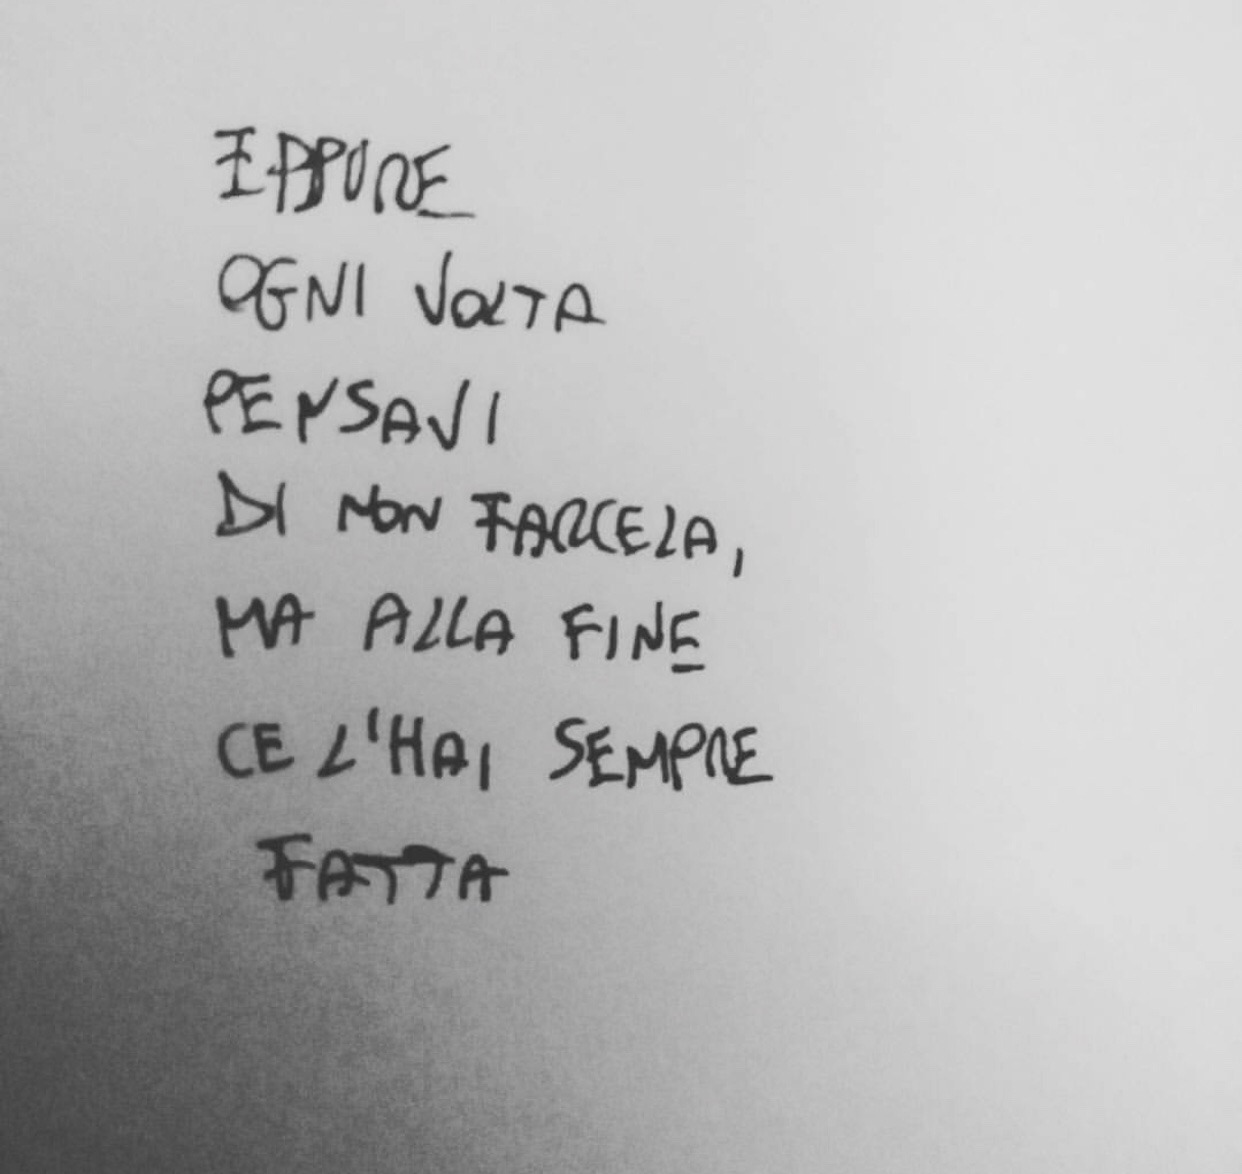 EPPURE
OGNI VOLTA
PENSAVI
DI NON FARCELA,
MA ALLA FINE
CE L'HAI SEMPRE
FATTA